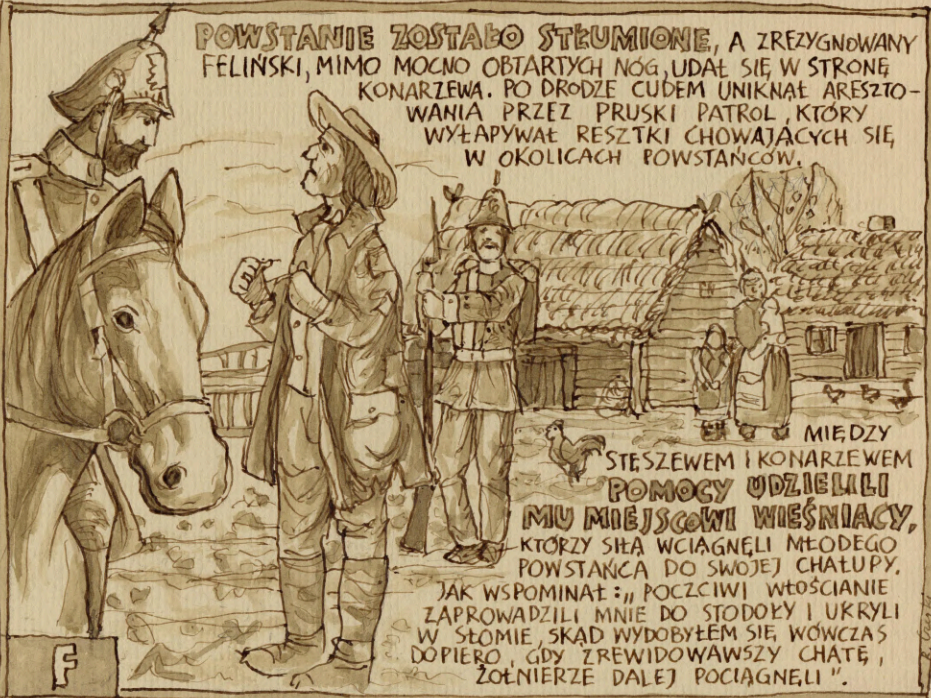 POWSTANIE ZOSTAŁO STŁUMIONE, A ZREZYGNOWANY
FELIŃSKI, MIMO MOCNO OBTARTYCH NÓG, UDAŁ SIĘ W STRONĘ
KONARZEWA. PO DRODZE CUDEM UNIKNĄŁ ARESZTO-
WANIA PRZEZ PRUSKI PATROL, KTÓRY
WYŁAPYWAŁ RESZTKI CHOWAJĄCYCH SIĘ
W OKOLICACH POWSTAŃCÓW.
MIĘDZY
STĘSZEWEM I KONARZEWEM
POMOCY UDZIELILI
MU MIEJSCOWI WIEŚNIACY,
KTÓRZY SIŁĄ WCIĄGNĘLI MŁODEGO
POWSTAŃCA DO SWOJEJ CHAŁUPY.
JAK WSPOMINAŁ: „POCZCIWI WŁOŚCIANIE
ZAPROWADZILI MNIE DO STODOŁY I UKRYLI
W SŁOMIE, SKĄD WYDOBYŁEM SIĘ WÓWCZAS
DOPIERO, GDY ZREWIDOWAWSZY CHATĘ,
ŻOŁNIERZE DALEJ POCIĄGNĘLI".
F